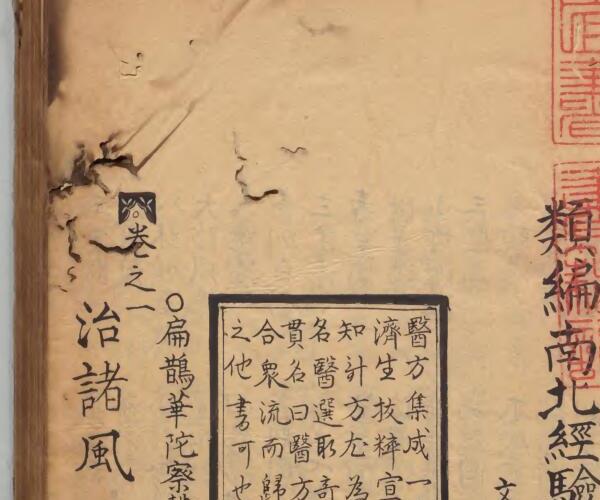 類編南北經驗
文
醫方集成一
濟生拔粹宣
知計方尤為
名醫選取奇
貫名曰醫方
合衆流而歸
之他書可也
○扁鵲華陀察
卷之一
治諸風